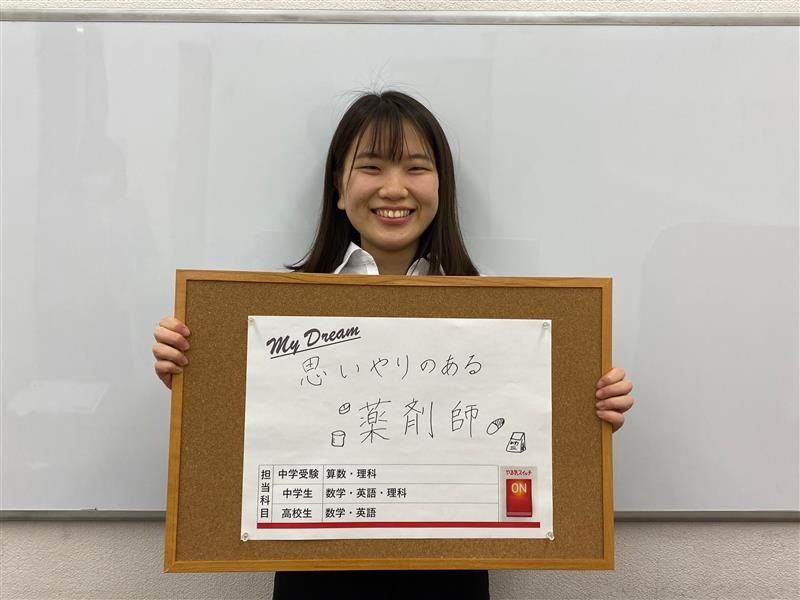 My Dream
思いやりのある
薬剤師
担当科目
中学受験 算数・理科
中学生 数学・英語・理科
高校生 数学・英語
やる気スイッチ
ON